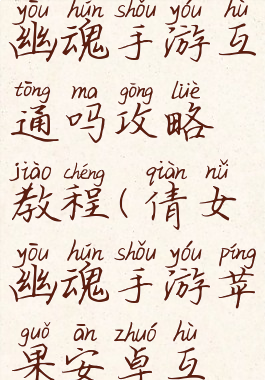 yōu hún shǒu yóu hù
幽魂手游互
tōng ma gōng lüè
通吗攻略
jiào chéng qiàn nǚ
教程(倩女
yōu hún shǒu yóu píng
幽魂手游苹
guǒ ān zhuó hù
果安卓互